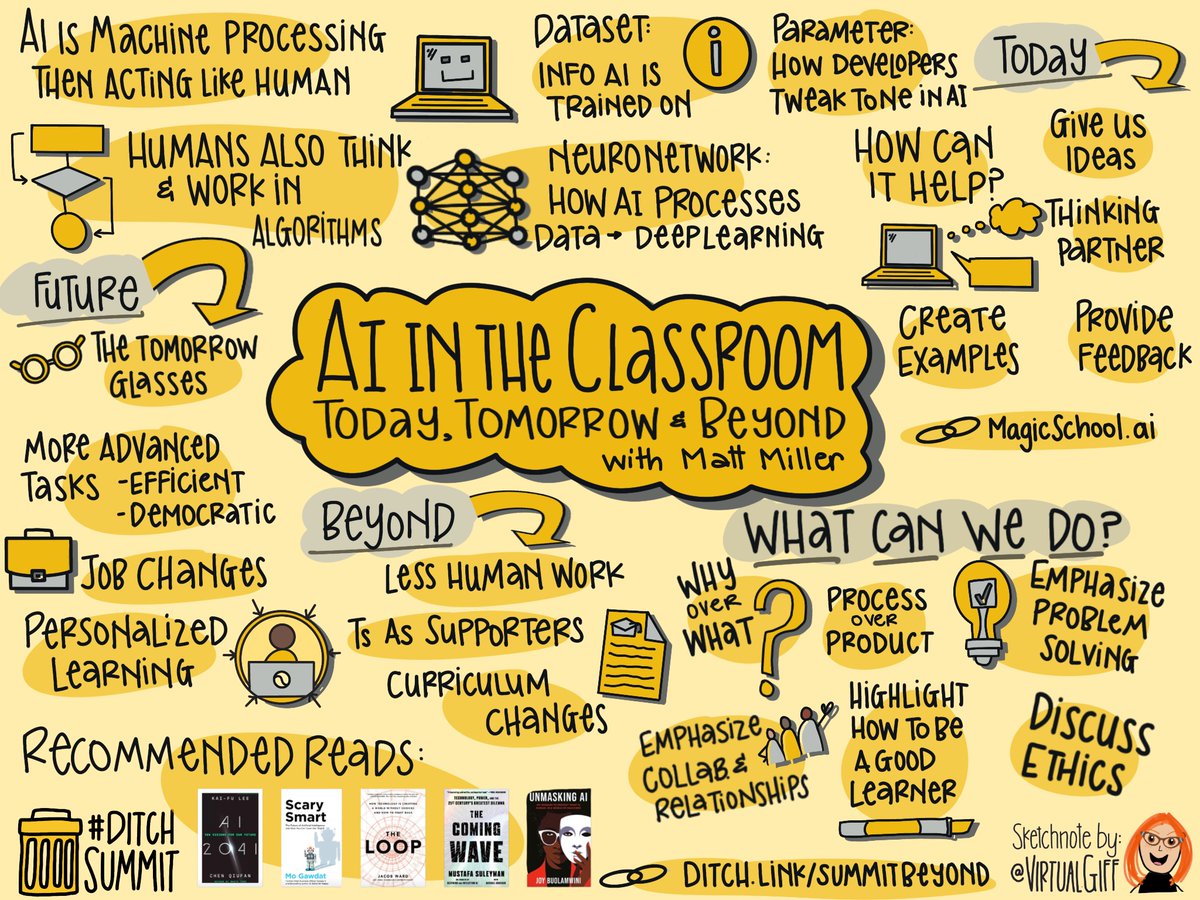 AI is Machine Processing
Then Acting Like Human
Dataset:
Info AI is
Trained on
i
Parameter:
How Developers
Tweak Tone in AI
Today
Give us
Ideas
How can
it help?
Thinking
Partner
Create
Examples
Provide
Feedback
MagicSchool.ai
Humans also think
& work in
Algorithms
Neuronetwork:
How AI Processes
Data → Deeplearning
Future
The Tomorrow
Glasses
More Advanced
Tasks -Efficient
-Democratic
Job Changes
Personalized
Learning
AI in the Classroom
Today, Tomorrow & Beyond
with Matt Miller
Beyond
Less Human Work
Ts As Supporters
Curriculum
Changes
What Can We Do?
Why
over
What
?
Process
over
Product
Emphasize
Problem
Solving
Emphasize
Collab. &
Relationships
Highlight
How to be
a Good
Learner
Discuss
Ethics
Recommended Reads:
#Ditch
Summit
KAI-FU LEE
AI
2041
CHEN QIUFAN
Scary
Smart
Mo Gawdat
THE
LOOP
JACOB WARD
THE
COMING
WAVE
MUSTAFA SULEYMAN
UNMASKING AI
JOY BUOLAMWINI
Ditch.link/summitbeyond
Sketchnote by:
@VirtualGiff